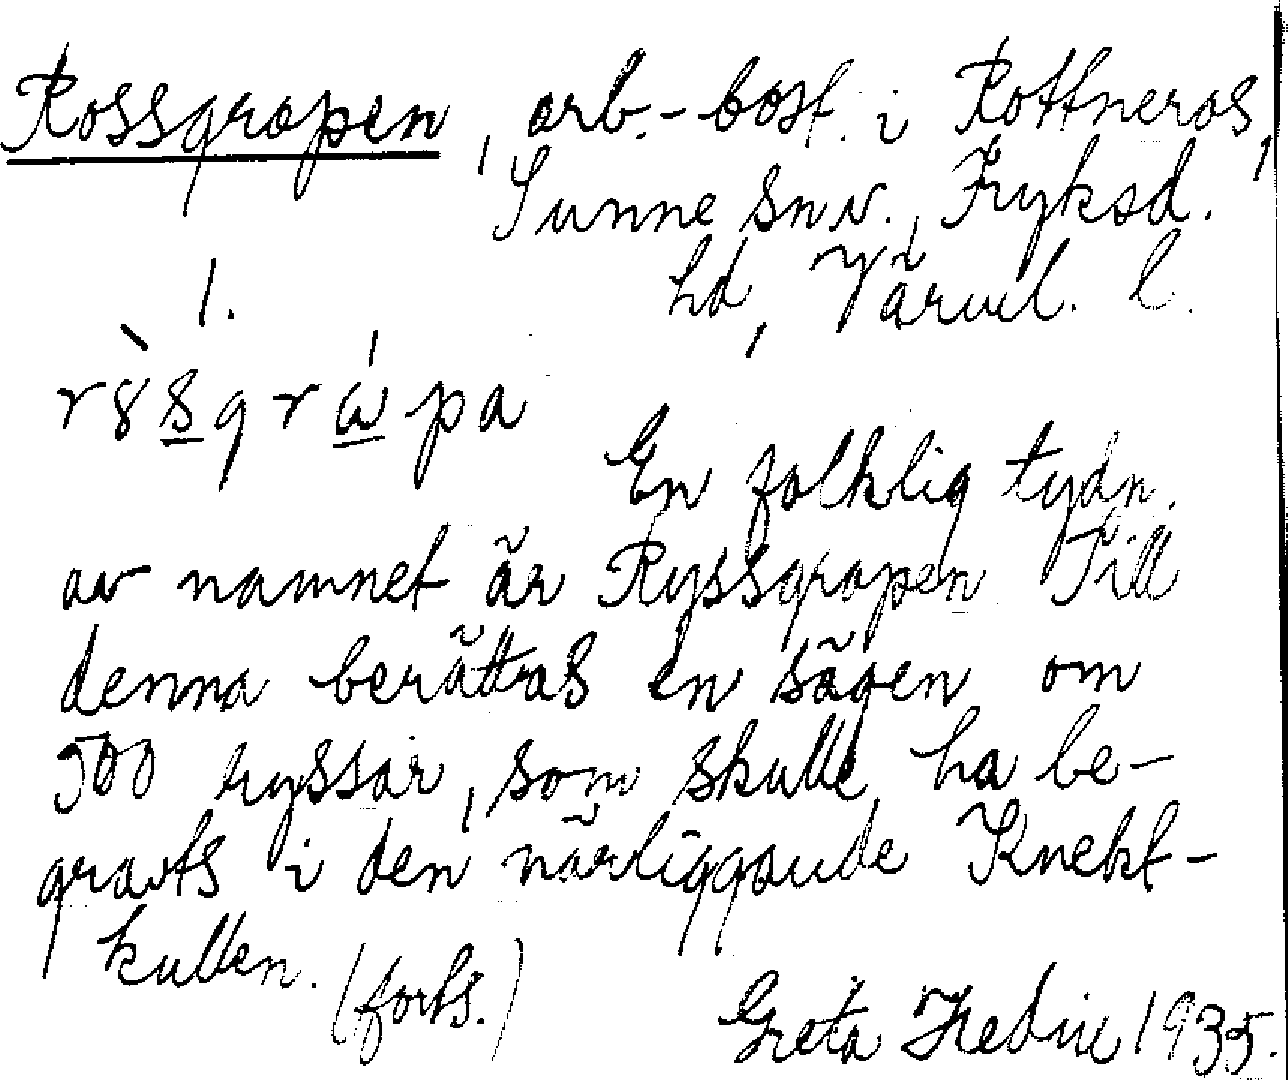 Rossgropen, arb.-bost. i Rottneros,
Sunne snv., Fryksd.
hd, Värml. l.
1.
En folklig tydn.
av namnet är Ryssgropen. Till
denna berättas en sägen om
500 ryssar, som skulle ha be-
gravts i den närliggande Knekt-
kullen. (forts.)
Greta Hedin 1935.